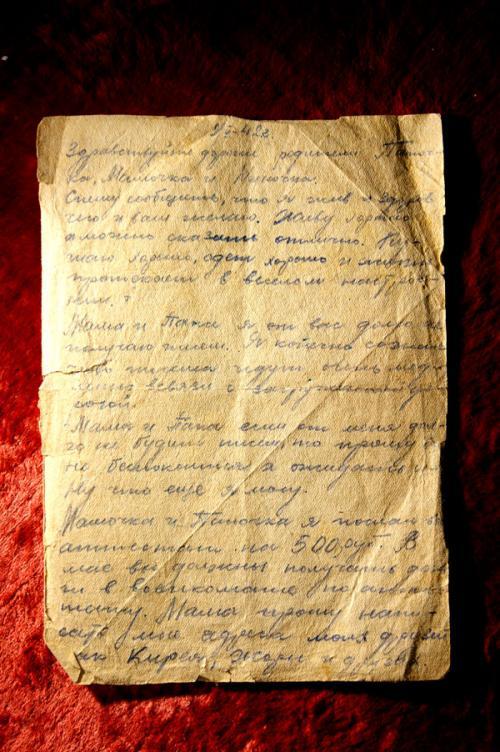 Здравствуйте дорогие родители Папоч-
ка, Мамочка и
Спешу сообщить, что я жив и здоров
чего и вам желаю. Живу хорошо
можно сказать отлично. Пи-
таюсь хорошо, одет хорошо и
протекает в веселом настрое-
нии.
Мама и Папа я от вас долго не
получаю писем. Я конечно
письма идут очень мед-
ленно всвязи с
Мама и Папа если от меня дол-
го не будит писем, то прошу
не беспокоиться а ожидать
Ну что еще я могу.
Мамочка и Папочка я послал
аттестат на 500 руб. В
мае вы должны получить день-
ги в военкомате по аттес-
тату. Мама прошу напи-
сать мне адреса моих друзей
как Кирея, Жоры и других